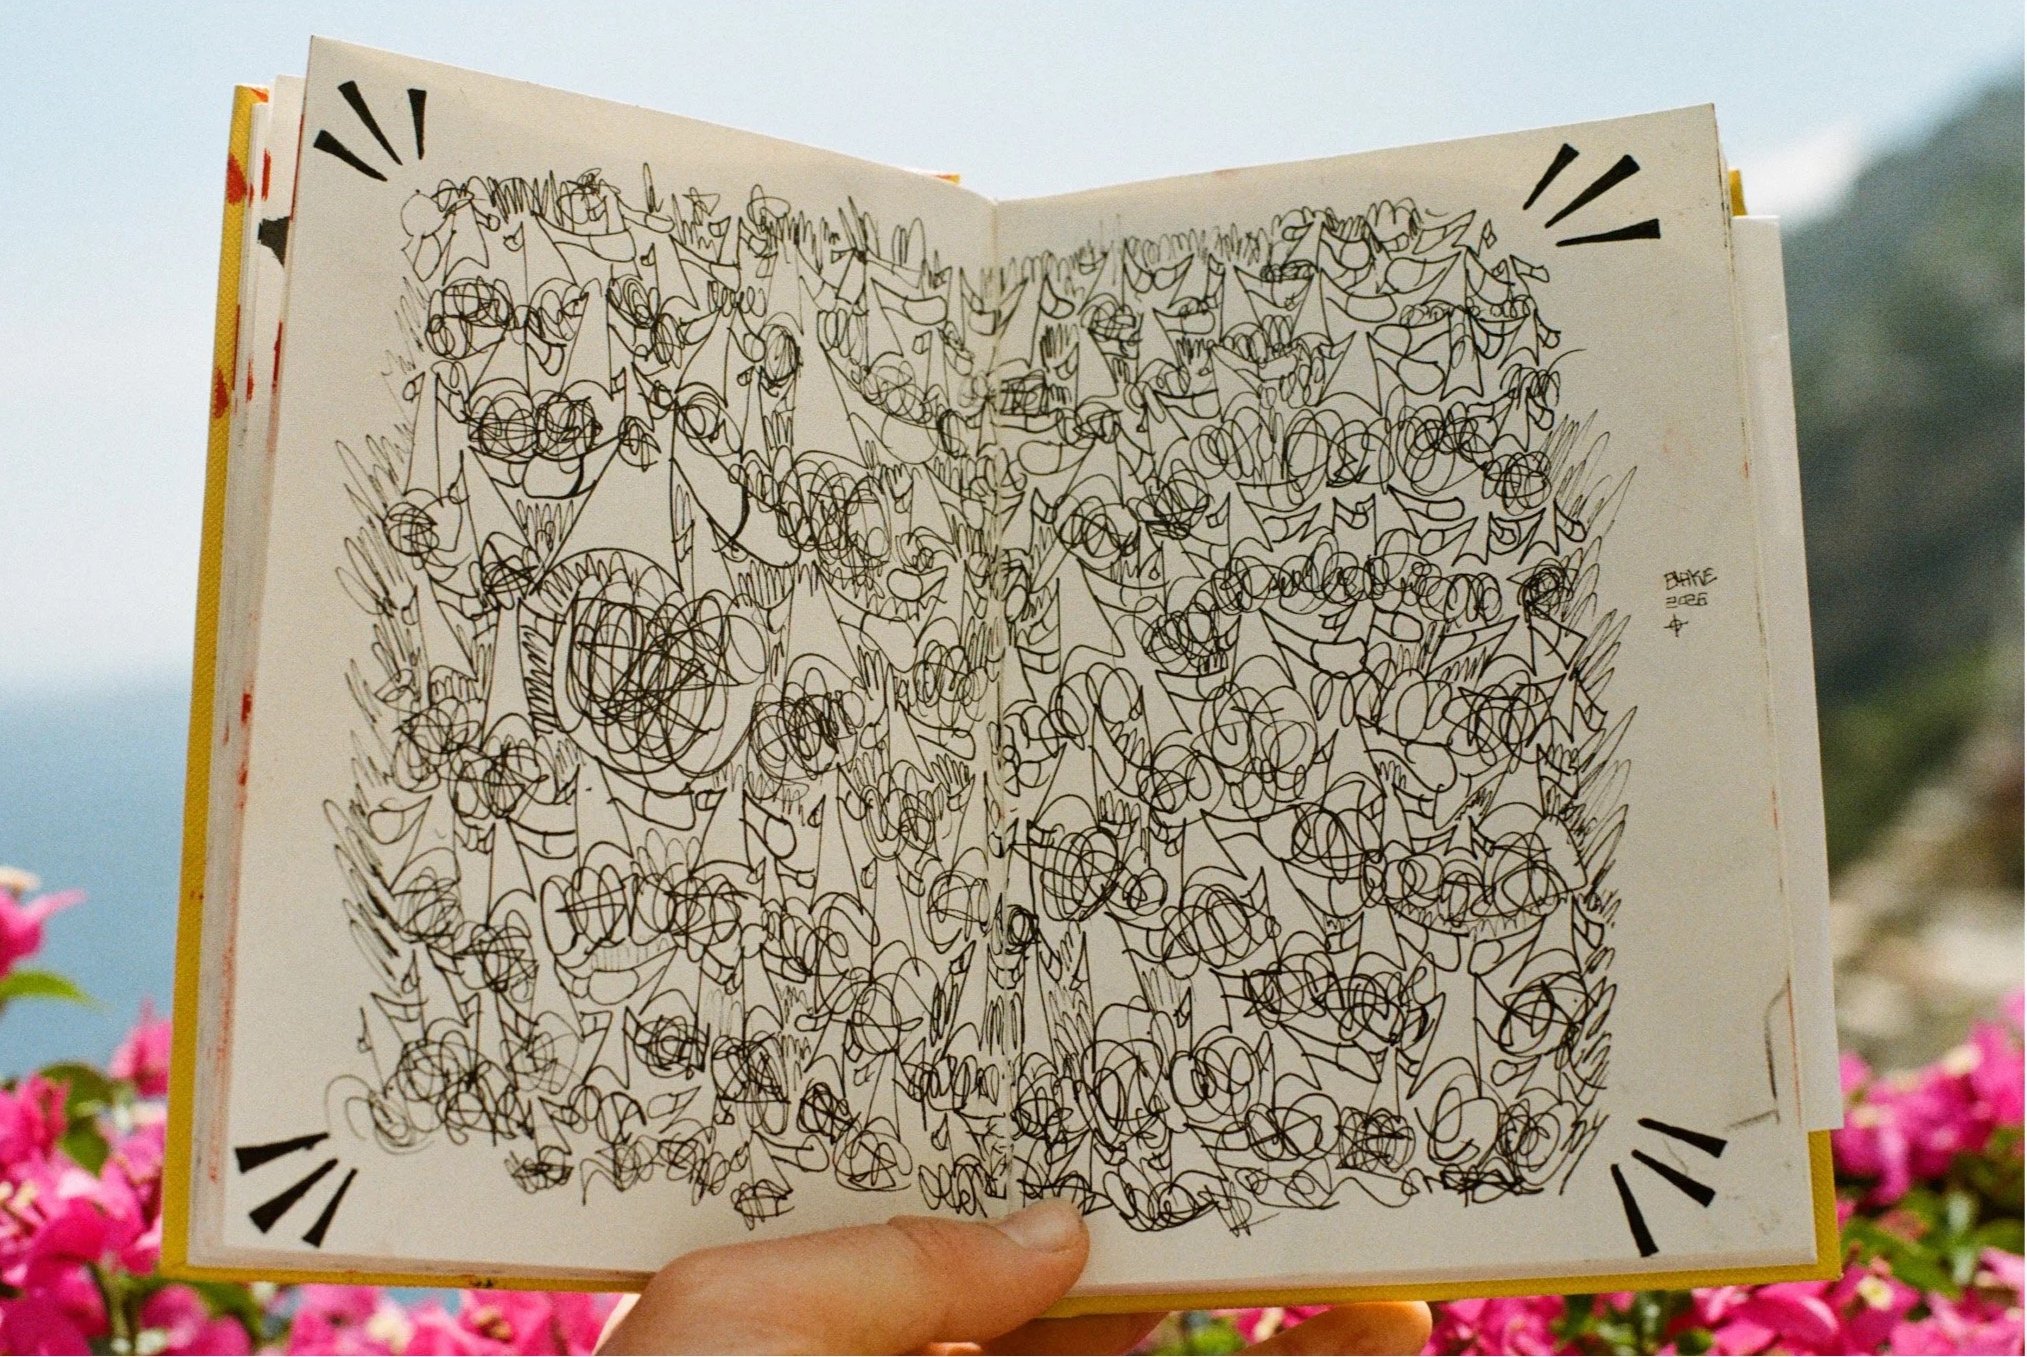 BLAKE
2026